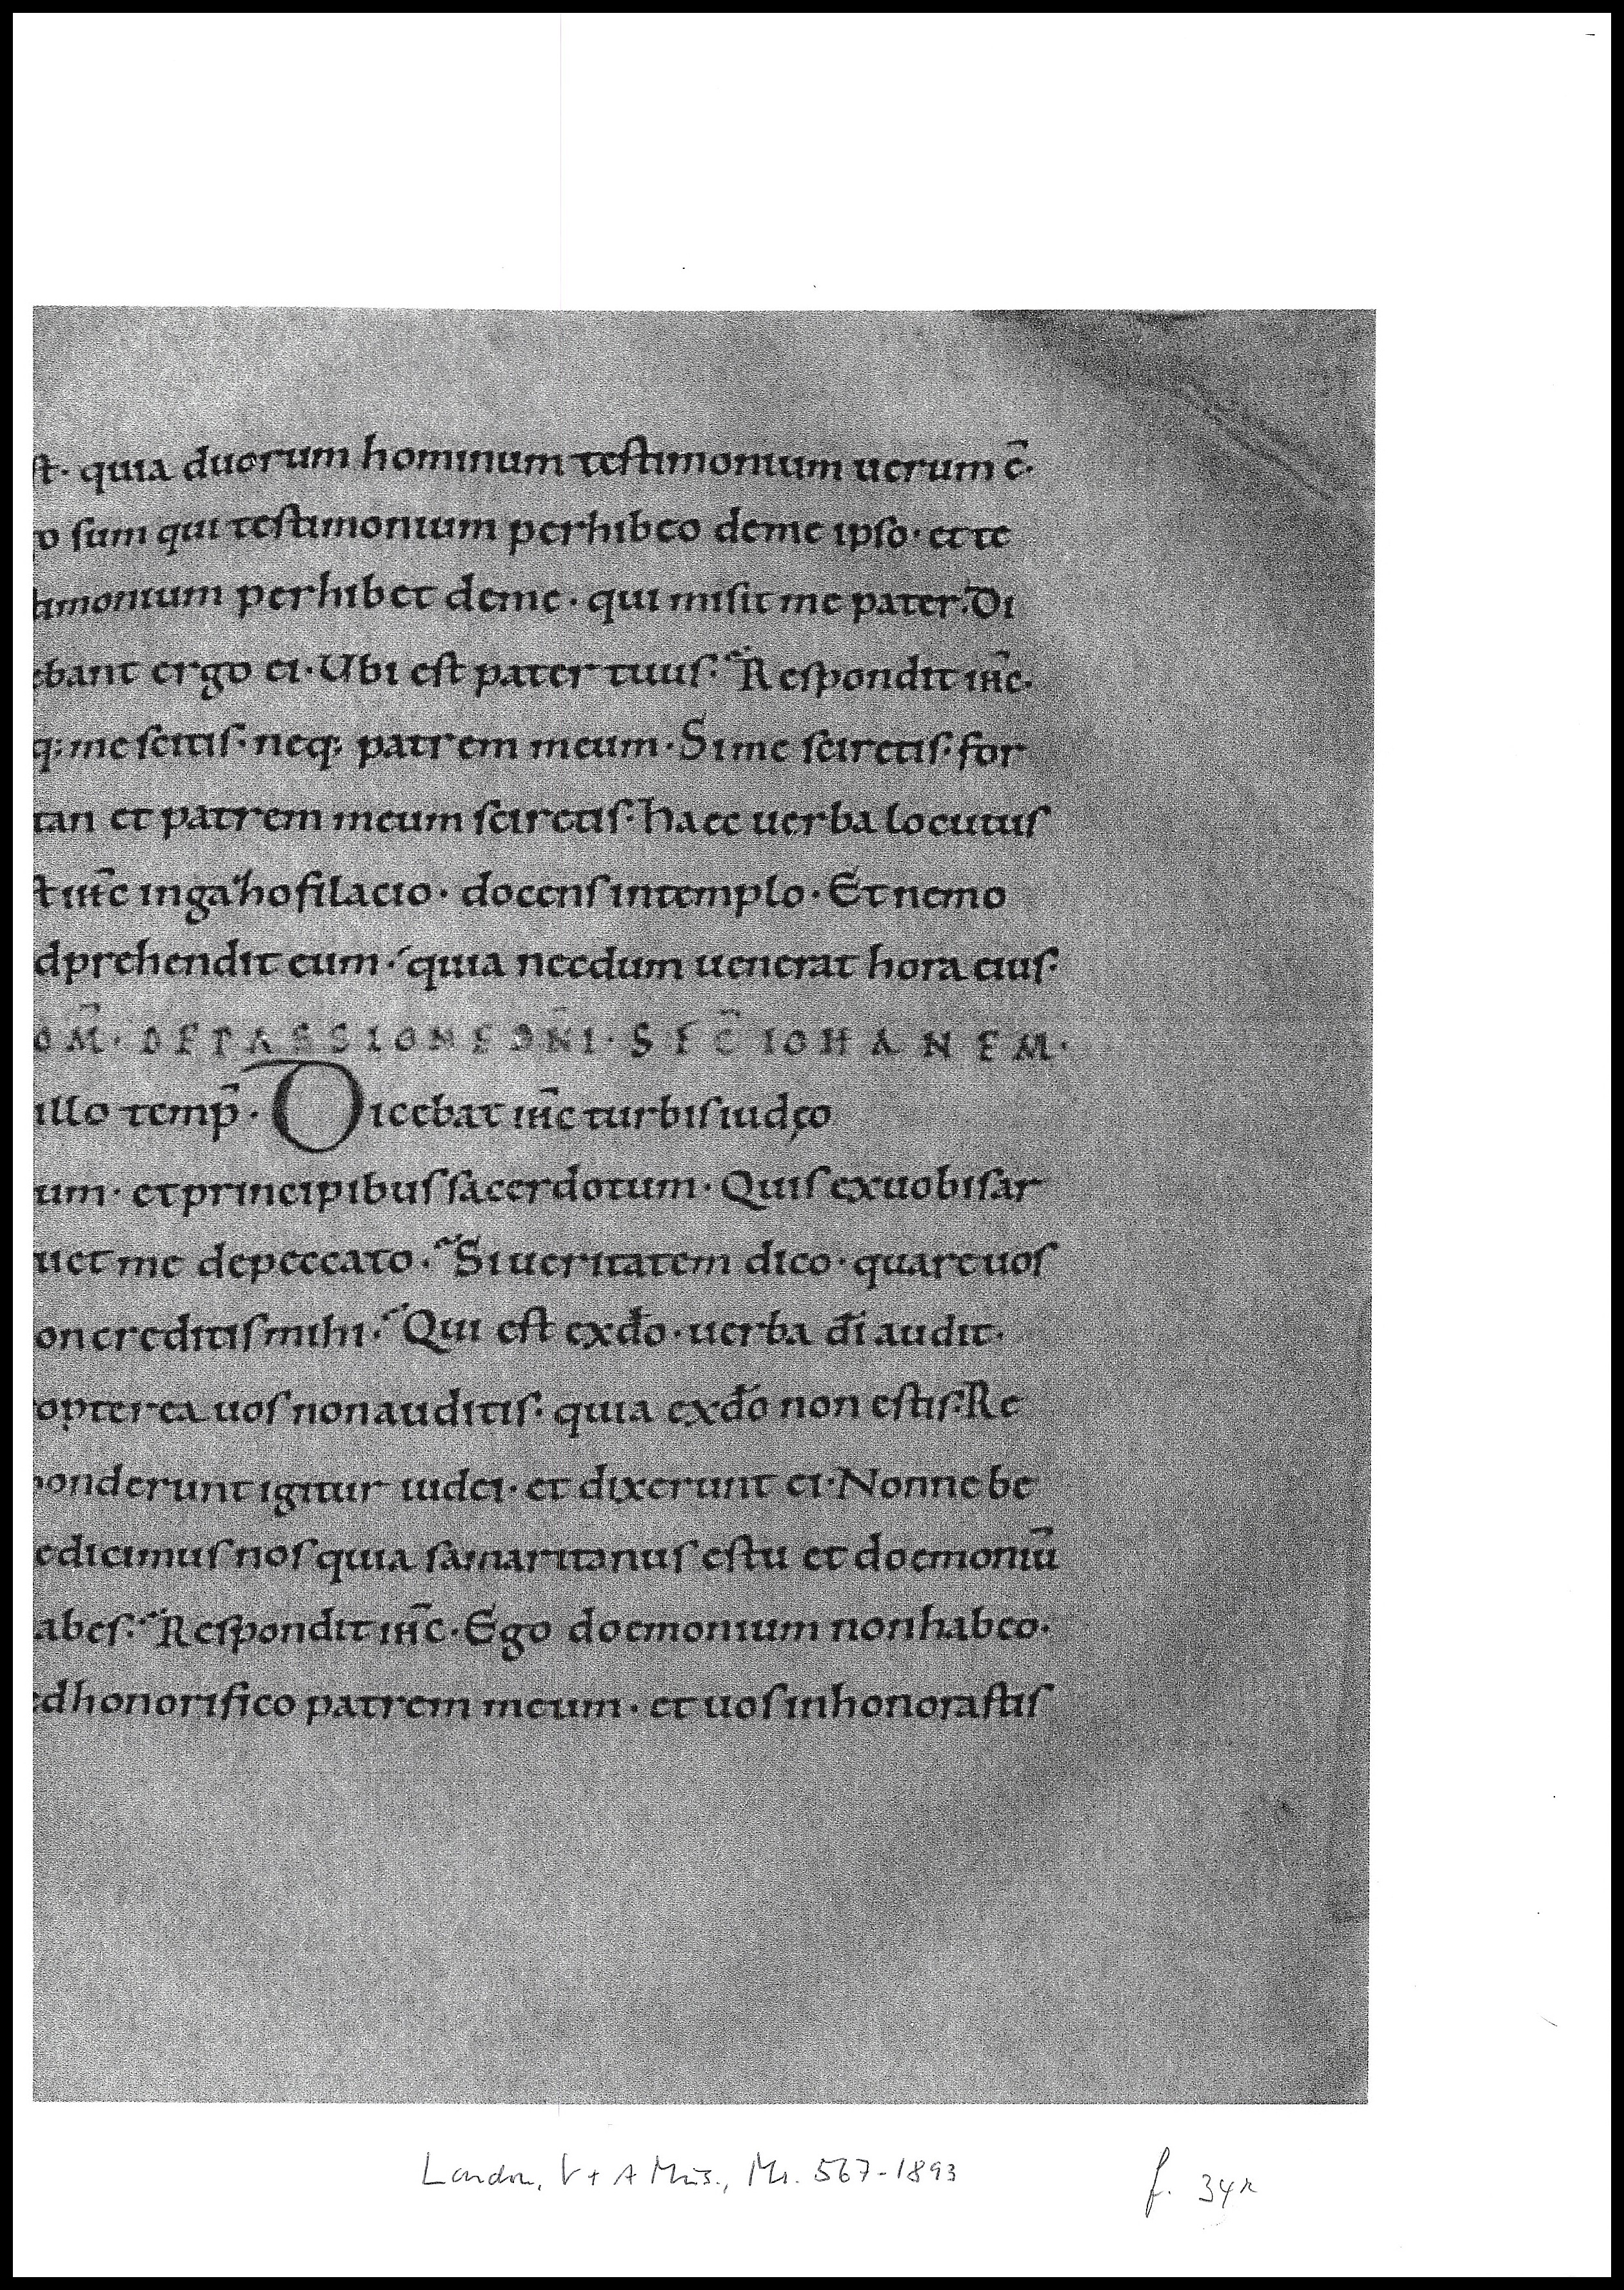 st· quia duorum hominum testimonium uerum ē·
o sum qui testimonium perhibeo deme ipso· et te
timonium perhibet deme· qui misit me pater. Di
ebant ergo ei· Ubi est pater tuus· Respondit ihc̄·
q; me scitis· neq; patrem meum· Si me sciretis· for
tan et patrem meum sciretis· haec uerba locutus
t ihc̄ ingazhofilacio· docens intemplo· Et nemo
dprehendit eum· quia necdum uenerat hora eius·
OM̄· DE PASSIONE DN̄I· SEC̄ IOHANEM·
illo temp̄· Dicebat ihc̄ turbis iudęo
um· et principibus sacerdotum· Quis exuobis ar
uet me depeccato· Si ueritatem dico· quare uos
on creditis mihi· Qui est exdō· uerba dī audit·
opterea uos non auditis· quia exdō non estis· Re
onderunt igitur iudei· et dixerunt ei· Nonne be
edicimus nos quia samaritanus es tu et doemoniū
abes· Respondit ihc̄· Ego doemonium non habeo·
ed honorifico patrem meum· et uos inhonorastis
London, V + A Mus., Ms. 567-1893 f. 34r